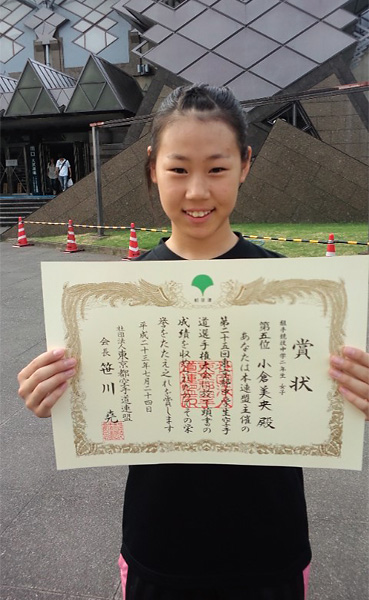 賞状
組手競技中学二年生 女子
第五位 小倉美央 殿
あなたは本連盟主催の
第二十五回東京都中学生空手
道選手権大会に於て頭書の
成績を収められましたその栄
誉をたたえ之れを賞します
平成二十三年七月二十四日
社団法人東京都空手道連盟
会長 笹川 堯